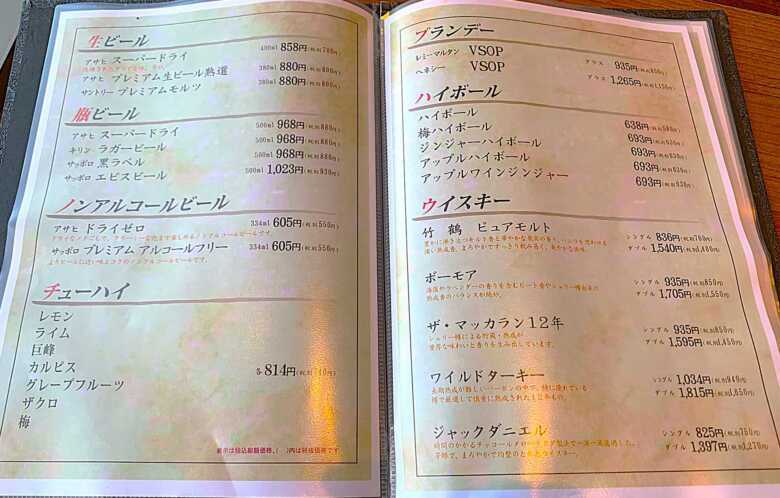 生ビール
アサヒ スーパードライ 400ml 858円(税別780円)
アサヒ プレミアム生ビール熟選 380ml 880円(税別800円)
サントリー プレミアムモルツ 380ml 880円(税別800円)
瓶ビール
アサヒ スーパードライ 500ml 968円(税別880円)
キリン ラガービール 500ml 968円(税別880円)
サッポロ 黒ラベル 500ml 968円(税別880円)
サッポロ エビスビール 500ml 1,023円(税別930円)
ノンアルコールビール
アサヒ ドライゼロ 334ml 605円(税別550円)
サッポロ プレミアム アルコールフリー 334ml 605円(税別550円)
よりビールに近い味とコクのノンアルコールビールです。
チューハイ
レモン
ライム
巨峰
カルピス
グレープフルーツ
ザクロ
梅
各 814円(税別740円)
表示は税込総額価格、( )内は税抜価格です
ブランデー
レミーマルタン VSOP グラス 935円(税別850円)
ヘネシー VSOP グラス 1,265円(税別1,150円)
ハイボール
ハイボール 638円(税別580円)
梅ハイボール 693円(税別630円)
ジンジャーハイボール 693円(税別630円)
アップルハイボール 693円(税別630円)
アップルワインジンジャー 693円(税別630円)
ウイスキー
竹鶴 ピュアモルト シングル 836円(税別760円)
ダブル 1,540円(税別1,400円)
ボーモア シングル 935円(税別850円)
ダブル 1,705円(税別1,550円)
熟成香のバランスが絶妙。
ザ・マッカラン12年 シングル 935円(税別850円)
シェリー樽による貯蔵・熟成が ダブル 1,595円(税別1,450円)
重厚な味わいと香りを生み出しています。
ワイルドターキー シングル 1,034円(税別940円)
ダブル 1,815円(税別1,650円)
ジャックダニエル シングル 825円(税別750円)
ダブル 1,397円(税別1,270円)